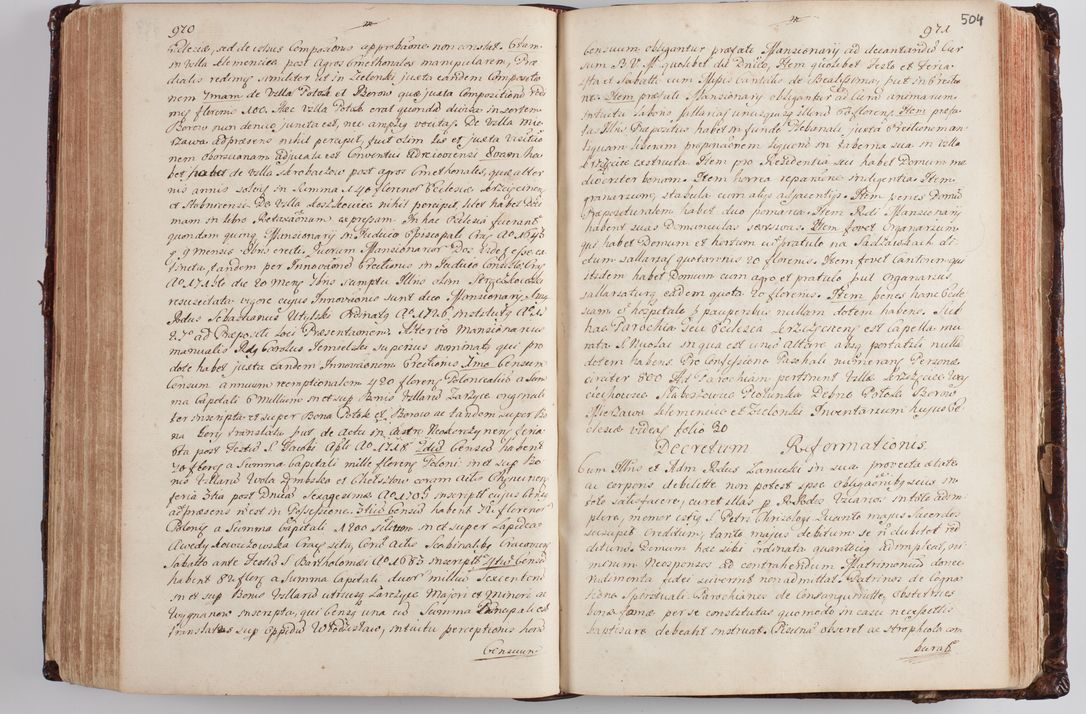 970
Ecclesiæ, sed de cujus Compositionis approbatione non constat. Etiam
in Villa Clemencice post Agros Cmethonales manipularem, Præ
dialis redimit similiter ut in Zielonki juxta eandem Composito
nem 7mam de Villa Potok et Borow quæ juxta Compositionem redi
mit florenis Hæc Villa Potok erat quondam divisa in sortem
Borow nunc denuo juncta est, nec amplius vocitat. De Villa Mie
rzawa ad præsens nihil percipit, fuit olim Lis et juxta Visitatio
nem adjucata est Conventui Andreioviensi ha
bet de Villa Skrobaczow post agros Cmethonales, quæ alter
nis annis solvit in Summa 40 florenos Ecclesiæ Krzcięcinen
et De Villa nihil percipit, licet habet Deci
mam in libro Retaxationum expressam. In hac Ecclesia fuerant
quondam quinque Mansionarij in Judicio Episcopali Crac: Ao 1643
9 mensis erecti. Quorum Mansionarior Dos videt esse ex
tincta, tandem per Innovationem Erectionis in Judicio
Ao 1715to die 20 mens sumptu Illris olim
resuscitata vigore cujus Innovationis sunt duo Mansionarij
Podus Sebastianus Utylski Ordinatus Ao 1726 institutus Ao
27o ad Præpositi Loci Præsentationem. Alter vero Mansionarius
manualis Rdus Carolus Jemielski superius nominatus qui pro
dote habet juxta eandem Innovationem Erectionis 1mo Censum
Censum annuum reemptionalem 420 florens Polonicalium a Sum
ma Capitali 6 Millium in et sup Bonis Villarum originali
ter inscripta et super Bona Potok et Borow ac tandem super Bo
na translata, put de Actu in Castro Neocorczynen feria
5ta post Festum S. Jacobi Apli Ao 1718. 2dus Census habent
70 florens a Summa Capitali mille florens Poloni in et sup Bo
nis Villarum Wola et Chelsztow coram Actis Chencinen
feria 3tia post Dnicam Sexagesimæ Ao 1703 inscripti cujus
ad præsens n'est in Possessione. 3tius Census habent 72 florenor
Polonis a Summa Capitali in et super Lapidea
Nowiczowska Crac: sita, Coram Actis Scabinalibus Cracovien
Sabatto ante Festum S Bartholomæi Ao 1683 inscripti 4tus Census
habent 82 floren a Summa Capitali duor millium Sexcentorum
in et sup Bonis Villarum utriusque Major et Minori ac
Wygnanow inscripta, qui Census una cum Summa Principali est
translatus sup oppidum Włodzislaw, intuitu perceptionis horum
Censuum
971
504
Censuum obligantur præfati Mansionarij ad decantandum Cur
sum B.V.M. quolibet die Dnico, Item quolibet Festo et Feria
5ta et Sabatti cum Missis cantatis de Beatissima, put in Erectio
ne. Item præfati Mansionarij obligantur ad Curam animarum
intuitu laboris, sallariat unicuique illorum florens. Item præfa
tus Illris Præpositus habet in fundo Plebanali juxta Erectionem an
tiquam Liberam propinationem Liquorum in Taberna sua in Villa
Krzcięcice exstructa. Item pro Residentia sui habet Domum me
diocriter bonam. Item horrea reparatione indigentia. Item
granarium, stabula cum alijs adjacentijs. Item penes Domum
Præposituralem habet duo pomaria. Item Rndi Mansionarij
habent suas Domunculas servanas. Item fovet Organarium
qui habet Domum et hortum cum pratulo na Sadzawkach di
ctum sallariat quotannis 20 florenis. Item fovet Cantorem qui
itidem habet Domum cum agro et pratulo, put Organarius
sallariatur eadem quota 20 florenis. Item penes hanc Eccle
siam e' hospitale p' pauperibus nullam dotem habens. Sub
hac Parochia Seu Ecclesia Krzcięcicensi est Capella mu
rata S Nicolai in qua est unum Altare absque portatili nullam
dotem habens. Pro Confessione Paschali numerans Personas
circiter 800. Ad Parochiam pertinent Villæ Krzcięcice Woj
ciechowice Słabuszowice Piołunka Dębno Potok Borow
Mierzawa Klemencice et Zielonki Inventarium hujus Ec
clesiæ videas folio 20
Decretum Reformationis.
Cum Illris et Adm Rndus Lanucki in sua provecta ætate
ac corporis debilitate non potest ipse obligationibus suis in
toto satisfacere, curet illas p' A.Rndos Vicarios in toto adim
plere, memor certus S. Petri Chrisologi Quanto majus Sacerdos
suscepit Creditum, tanto majus debitum se n' dubitet red
diturum Domum hac sibi ordinata quantocius adimpleat, ni
mirum Neosponsos ad contrahendum Matrimonium donec
rudimenta fidei sciverint non admittat Patrinos de Cogna
tione Spirituali. Parochianos de Consanguinitate, Obstetrices
bonæ famæ per se constitutas quomodo in casu necessitatis
baptisare debeant instruat. Piscina obseret ac strophiolo com
burat